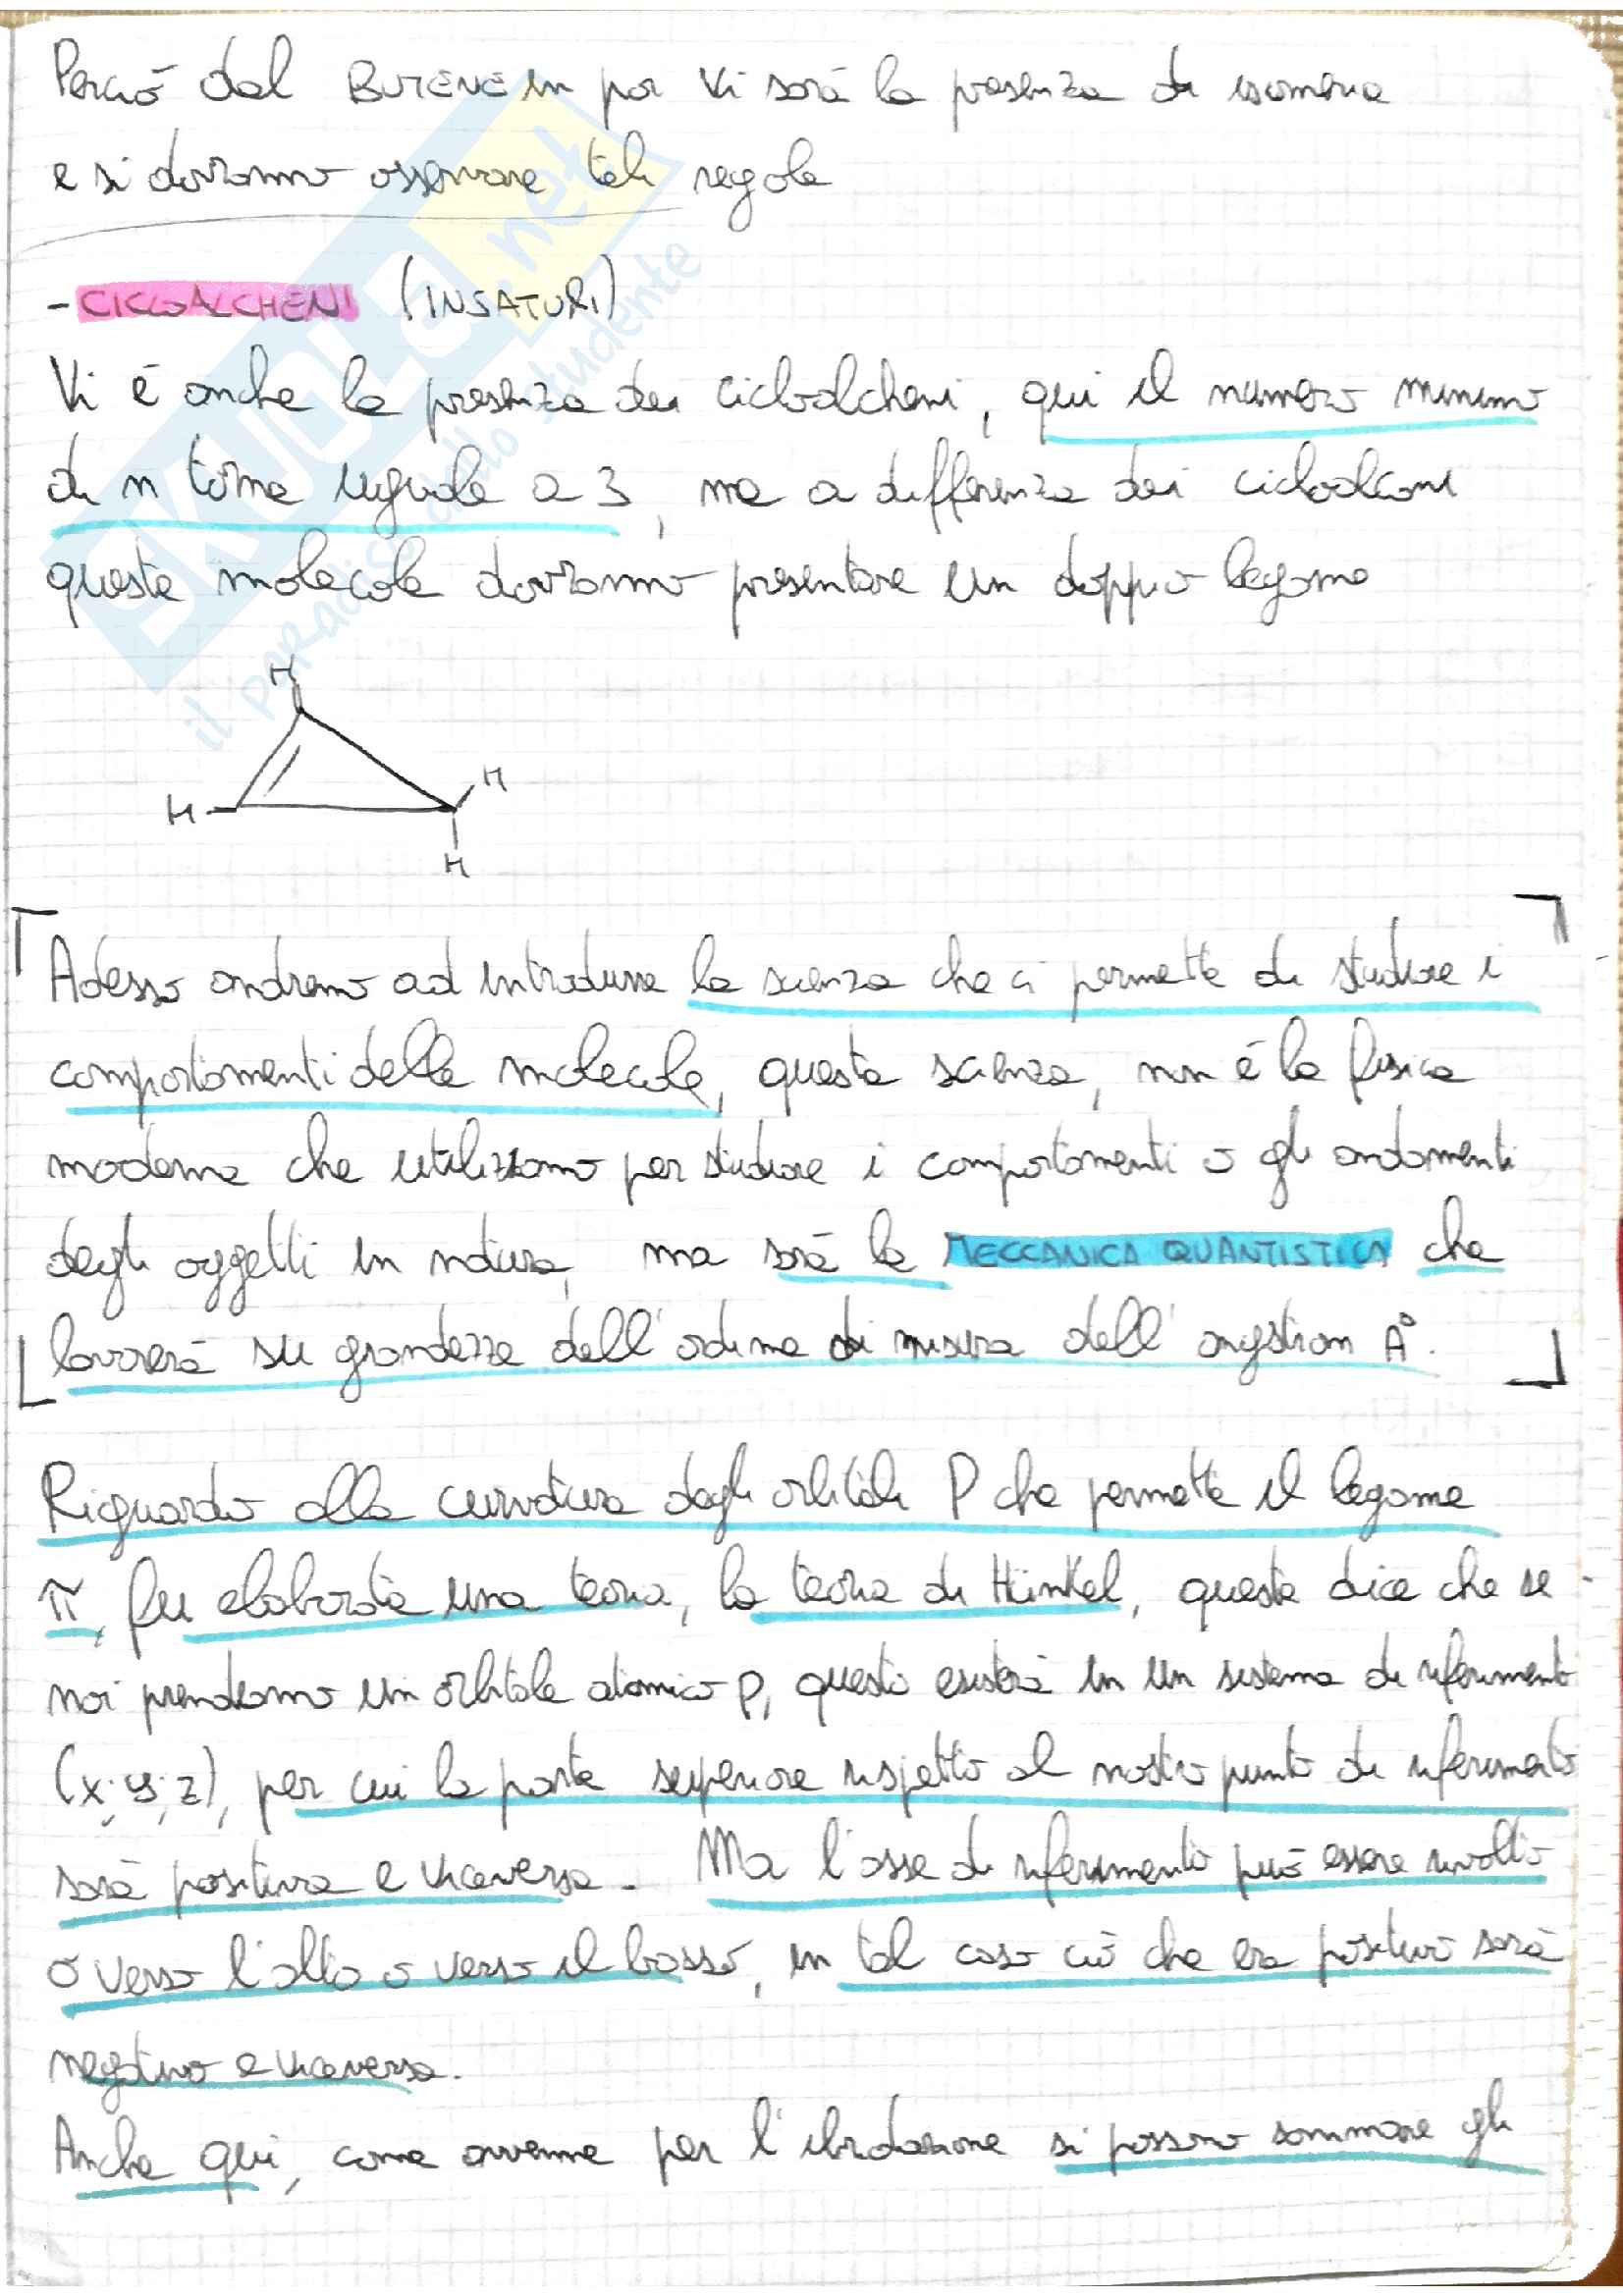 Perciò dal BUTENE in poi vi sarà la presenza di isomeria
e si dovranno osservare tali regole
- CICLOALCHENI (INSATURI)
Vi è anche la presenza dei cicloalcheni, qui il numero minimo
di n torna uguale a 3, ma a differenza dei cicloalcani
queste molecole dovranno presentare un doppio legame
H
H
H
H
Adesso andremo ad introdurre la scienza che ci permette di studiare i
comportamenti delle molecole, questa scienza, non è la fisica
moderna che utilizziamo per studiare i comportamenti o gli andamenti
degli oggetti in natura, ma sarà la MECCANICA QUANTISTICA che
lavorerà su grandezze dell'ordine di misura dell'angstrom A°.
Riguardo alla curvatura degli orbitali P che permette il legame
π, fu elaborata una teoria, la teoria di Hünkel, questa dice che se
noi prendiamo un orbitale atomico p, questo esisterà in un sistema di riferimento
(x; y; z), per cui la parte superiore rispetto al nostro punto di riferimento
sarà positiva e viceversa. Ma l'asse di riferimento può essere rivolto
o verso l'alto o verso il basso, in tal caso ciò che era positivo sarà
negativo e viceversa.
Anche qui, come avviene per l'ibridazione si possono sommare gli
SKUOLA.net
il paradiso dello studente